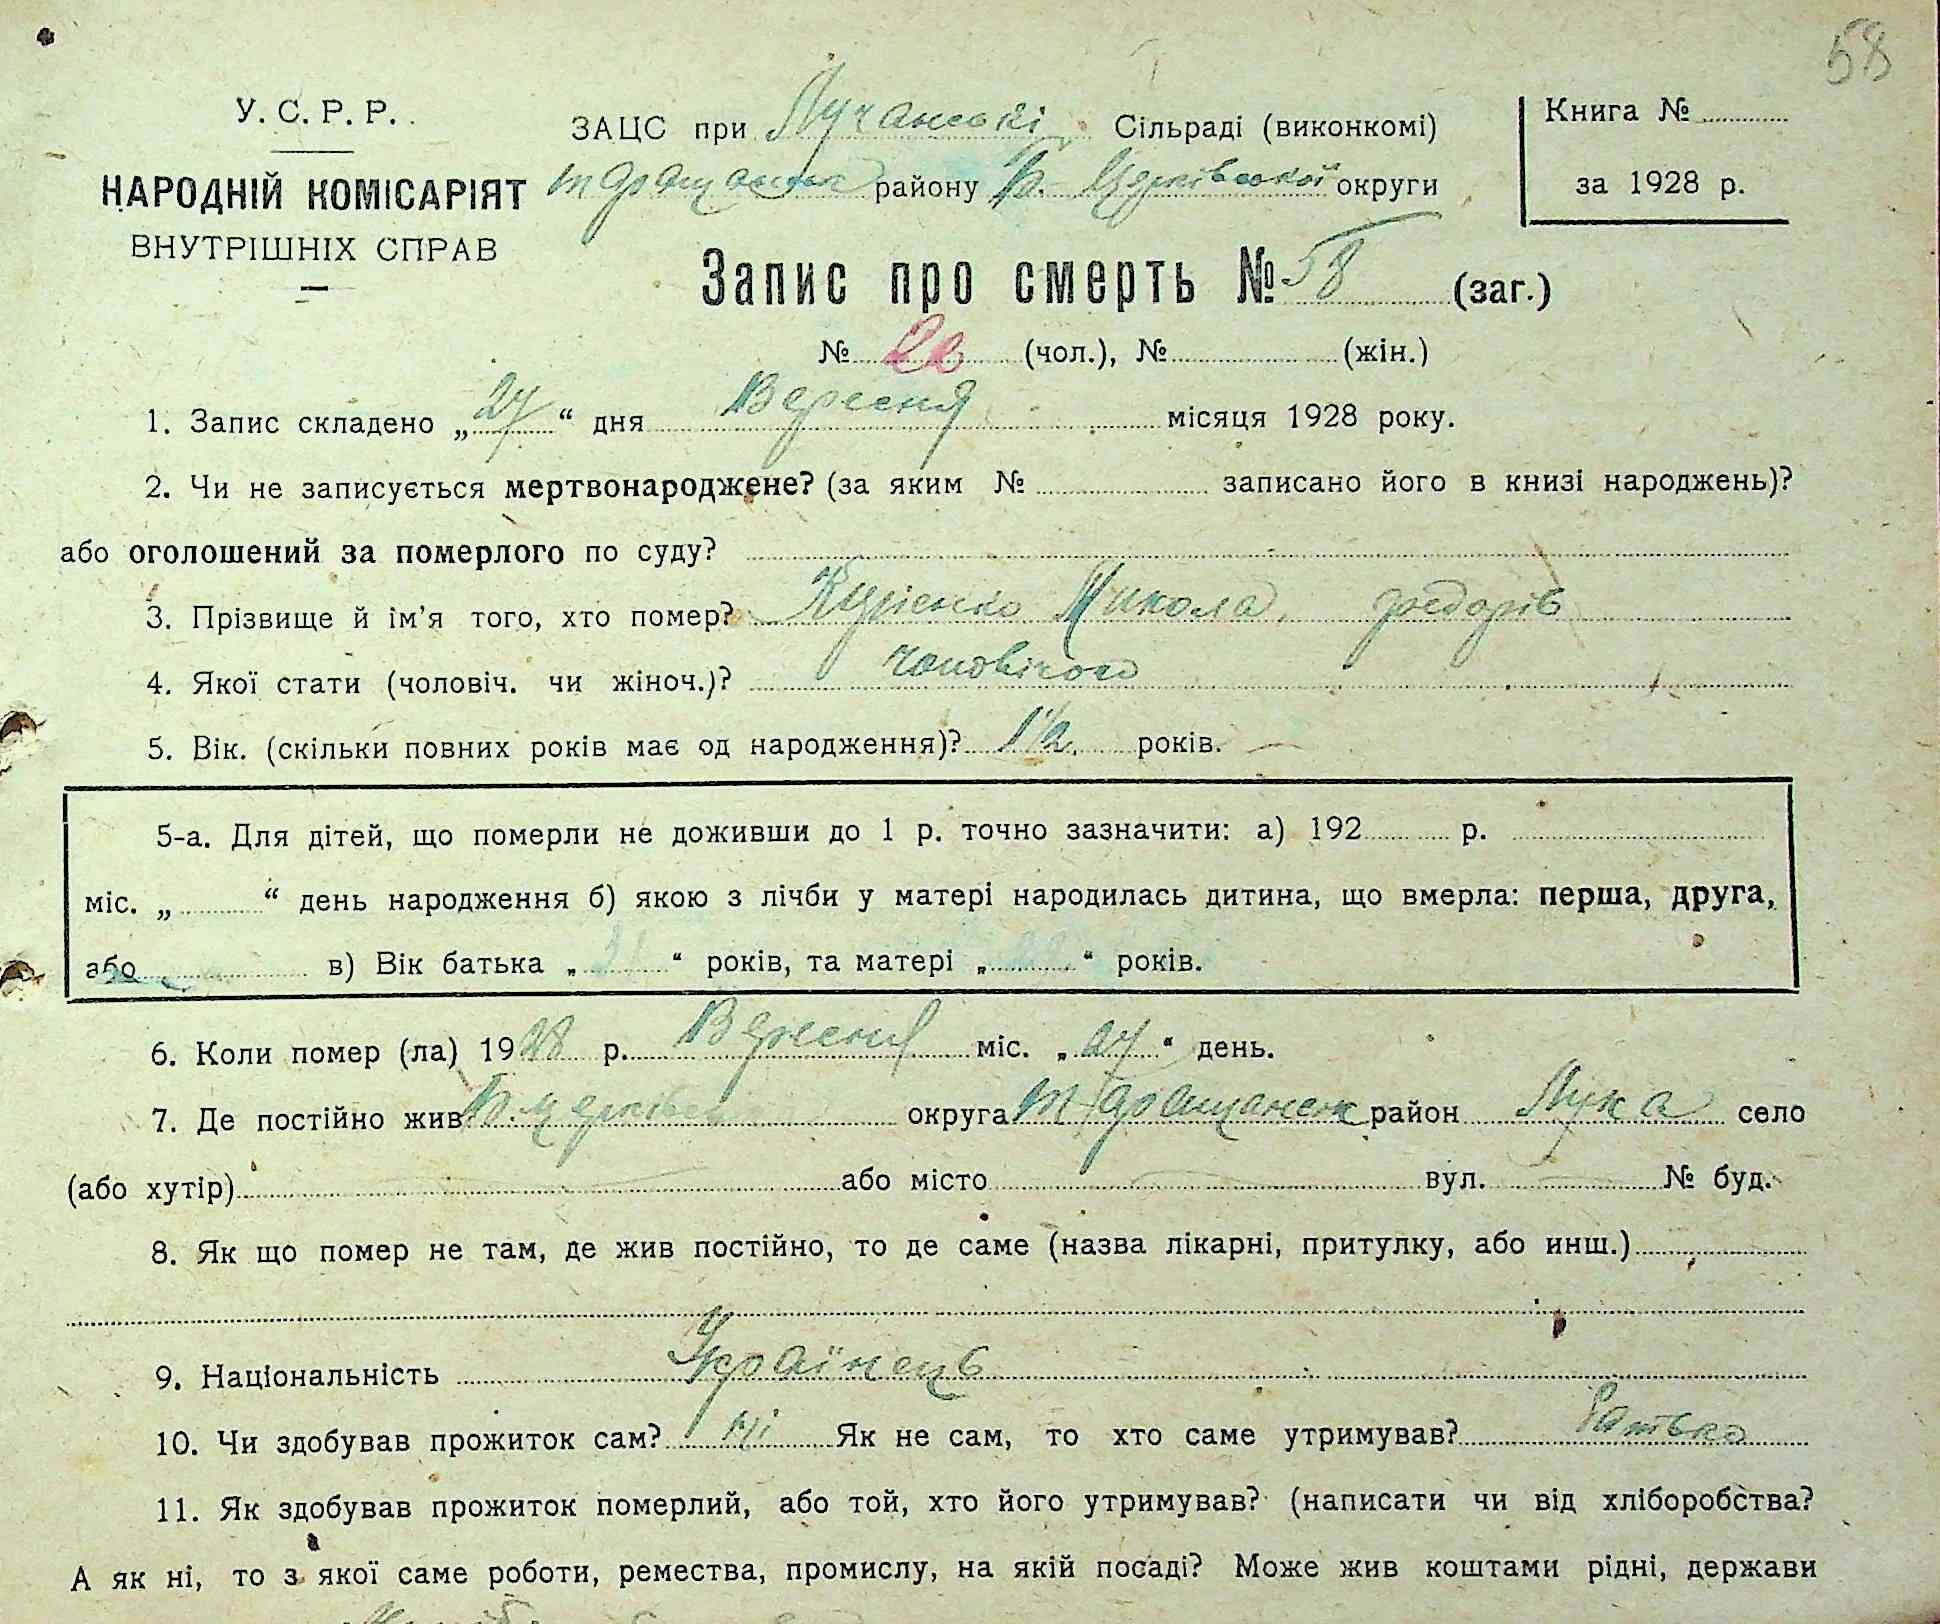 58
У. С. Р. Р.
НАРОДНІЙ КОМІСАРІЯТ
ВНУТРІШНІХ СПРАВ
ЗАЦС при Лучанські Сільраді (виконкомі)
Таращанськ району Б.-Церківської округи
Книга №
за 1928 р.
Запис про смерть № 58 (заг.)
№ (чол.), № (жін.)
1. Запис складено „27“ дня Вересня місяця 1928 року.
2. Чи не записується мертвонароджене? (за яким № записано його в книзі народжень)?
або оголошений за померлого по суду?
3. Прізвище й ім’я того, хто помер? Микола федорів
4. Якої стати (чоловіч. чи жіноч.)? чоловічого
5. Вік. (скільки повних років має од народження)? 1 1/2 років.
5-а. Для дітей, що померли не доживши до 1 р. точно зазначити: а) 192 р.
міс. „ “ день народження б) якою з лічби у матері народилась дитина, що вмерла: перша, друга,
або в) Вік батька „ “ років, та матері „ “ років.
6. Коли помер (ла) 1928 р. Вересня міс. „27“ день.
7. Де постійно жив Б. церківськ округа Таращанськ район Лука село
(або хутір) або місто вул. № буд.
8. Як що помер не там, де жив постійно, то де саме (назва лікарні, притулку, або инш.)
9. Національність Українець
10. Чи здобував прожиток сам? ні Як не сам, то хто саме утримував? батько
11. Як здобував прожиток померлий, або той, хто його утримував? (написати чи від хліборобства?
А як ні, то з якої саме роботи, ремества, промислу, на якій посаді? Може жив коштами рідні, держави